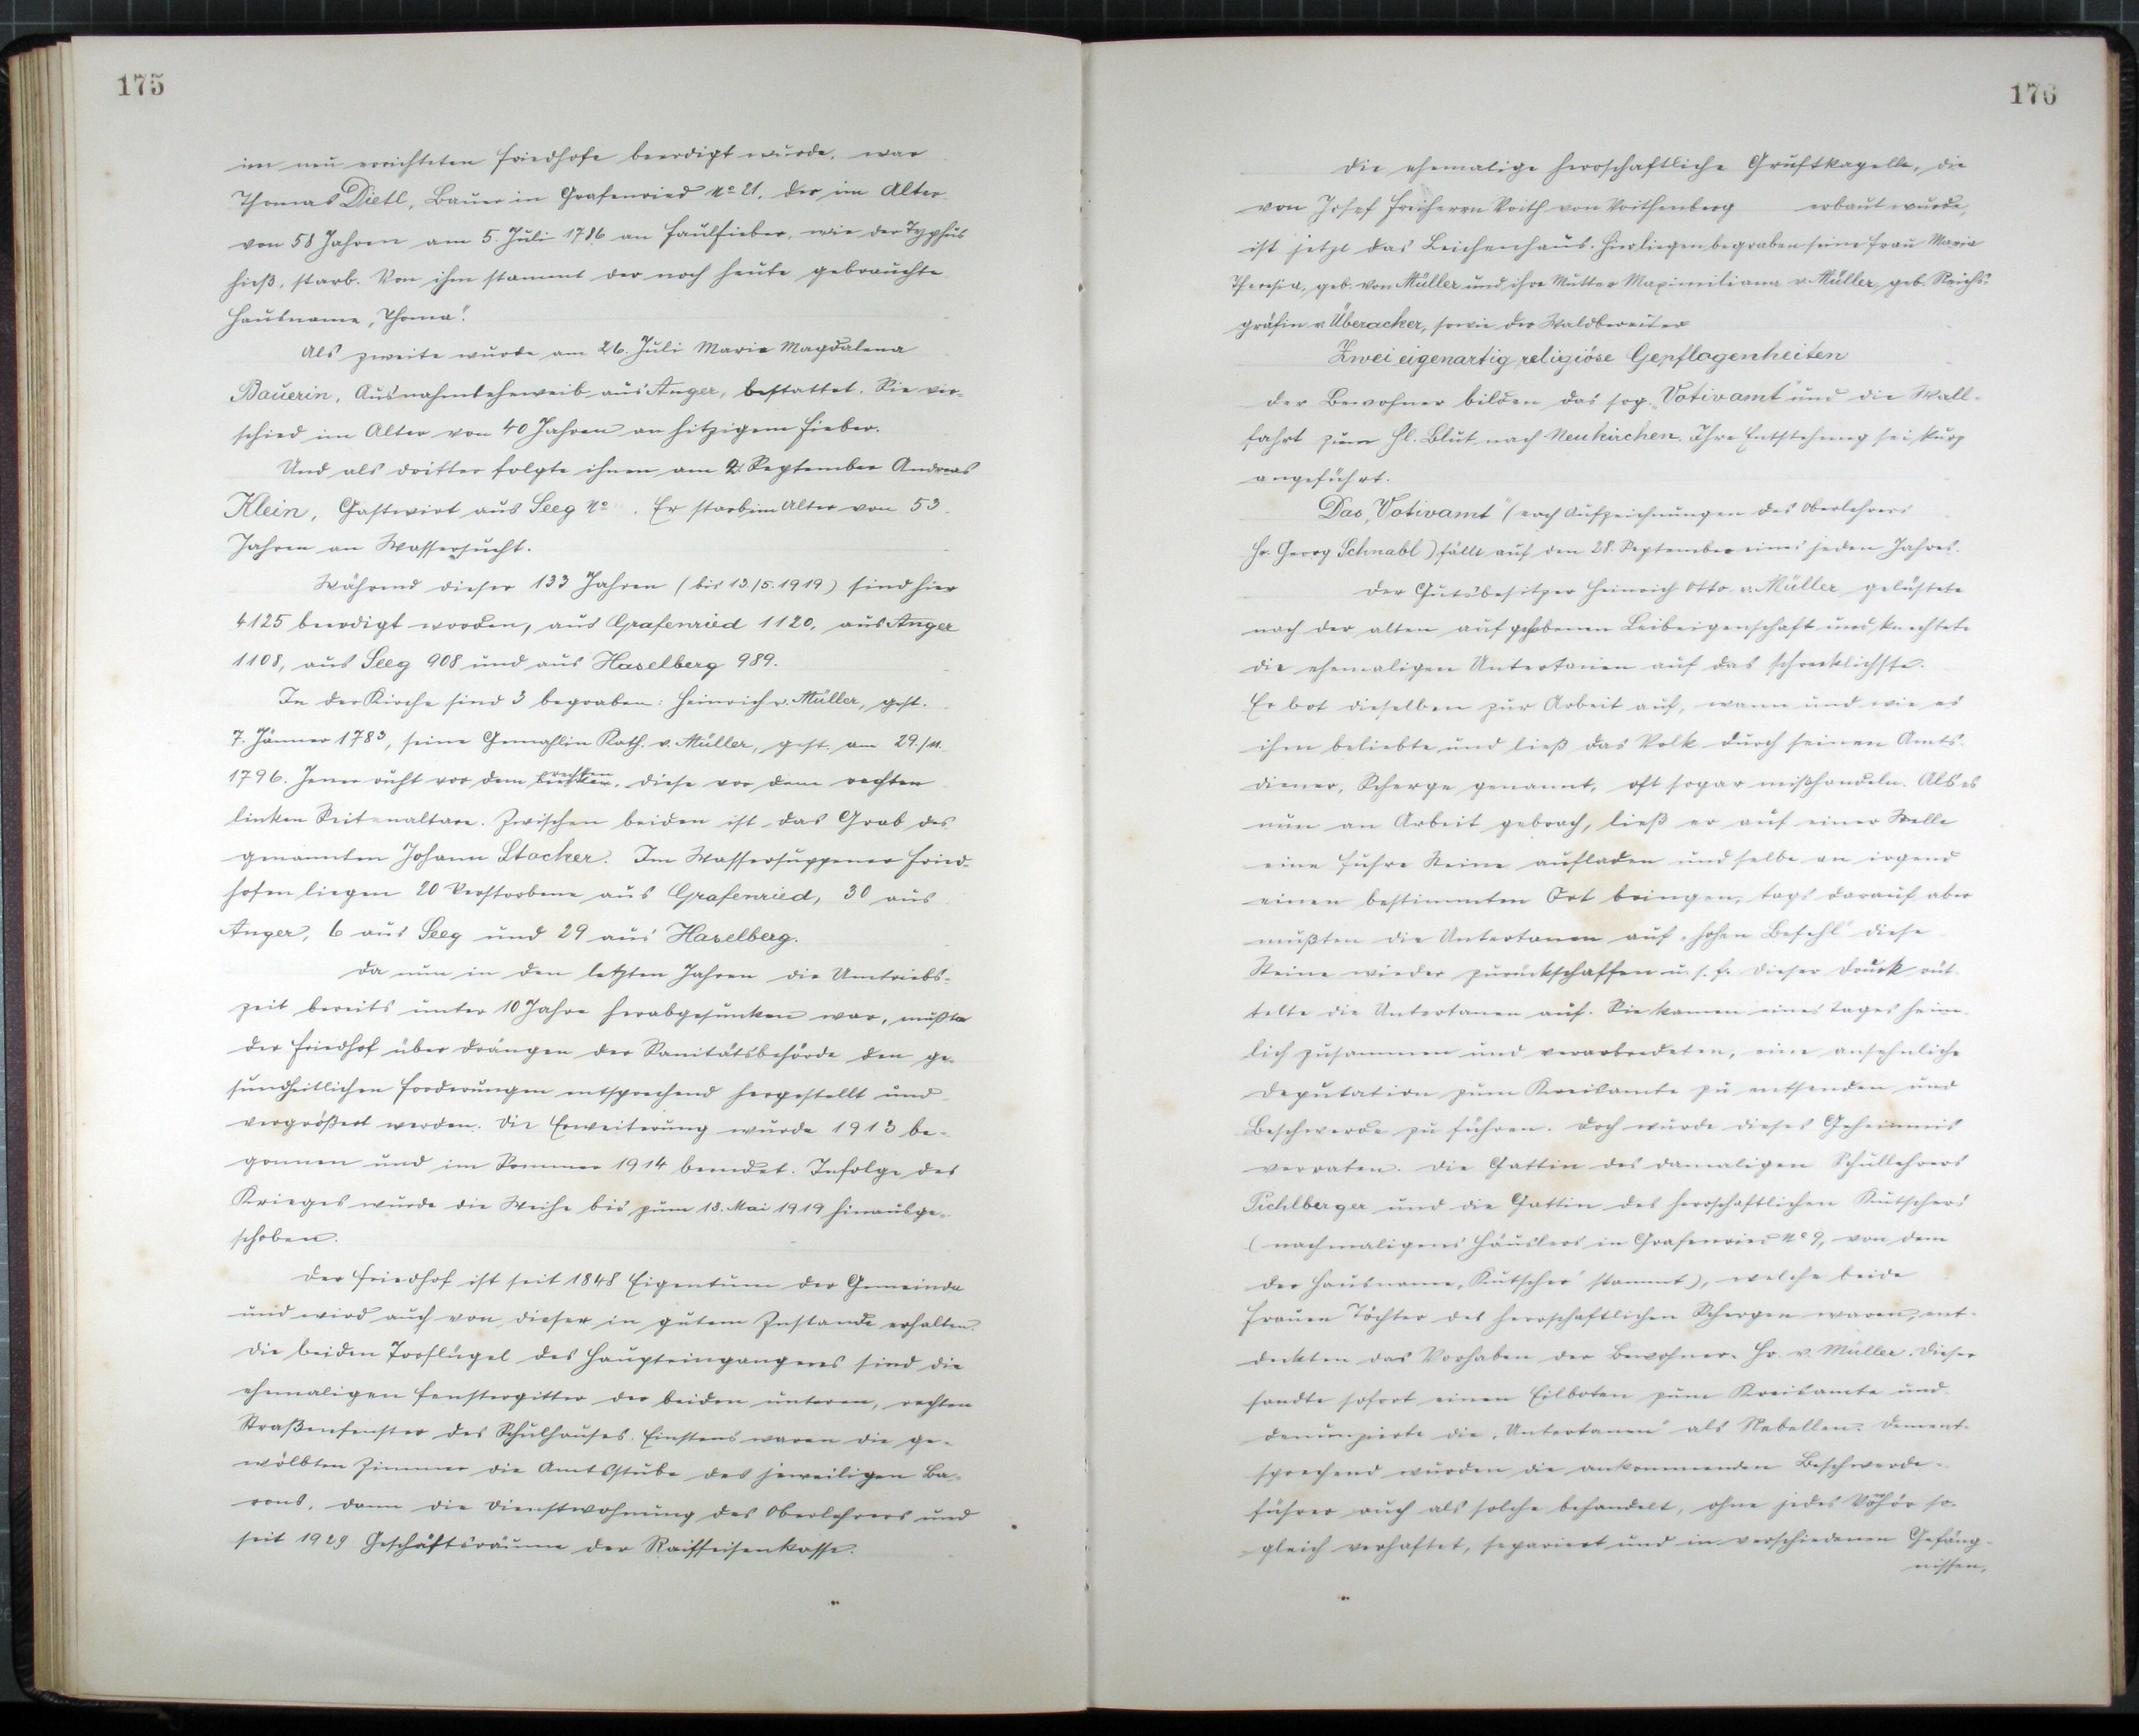 175
im neu errichteten Friedhofe beerdigt wurde, war
Thomas Dietl, Bauer in Grafenried No 21, der im Alter
von 58 Jahren am 5. Juli 1786 an Faulfieber, wie der Typhus
hieß, starb. Von ihm stammt der noch heute gebrauchte
Hausname „Thoma“.
Als zweite wurde am 26. Juli Maria Magdalena
Bauerin, Ausnahmlehenweib aus Anger, bestattet. Sie ver-
schied im Alter von 40 Jahren an hitzigem Fieber.
Und als dritter folgte ihnen am 2. September Andreas
Klein, Gastwirt aus Seeg No . Er starb im Alter von 53
Jahren an Wassersucht.
Während dieser 133 Jahren (bis 13/5. 1919) sind hier
4125 beerdigt worden, aus Grafenried 1120, aus Anger
1108, aus Seeg 908 und aus Haselberg 989.
In der Kirche sind 3 begraben: Heinrich v. Müller, gest.
7. Jänner 1783, seine Gemahlin Kath. v. Müller, gest. am 29./11.
1796. Jener ruht vor dem rechten, diese vor dem rechten
linken Seitenaltare. Zwischen beiden ist das Grab des
genannten Johann Stocker. Im Wassersuppener Fried-
hofen liegen 20 Verstorbene aus Grafenried, 30 aus
Anger, 6 aus Seeg und 29 aus Haselberg.
Da nun in den letzten Jahren die Umtriebs-
zeit bereits unter 10 Jahre herabgesunken war, mußte
der Friedhof über Drängen der Sanitätsbehörde den ge-
sundheitlichen Forderungen entsprechend hergestellt und
vergrößert werden. Die Erweiterung wurde 1913 be-
gonnen und im Sommer 1914 beendet. Infolge des
Krieges wurde die Weihe bis zum 13. Mai 1919 hinausge-
schoben.
Der Friedhof ist seit 1848 Eigentum der Gemeinde
und wird auch von dieser in gutem Zustande erhalten.
Die beiden Torflügel des Haupteinganges sind die
ehemaligen Fenstergitter der beiden unteren, rechten
Straßenfenster des Schulhauses. Einstens waren die ge-
wölbten Zimmer die Amtsstube des jeweiligen Ba-
rons, dann die Dienstwohnung des Oberlehrers und
seit 1929 Geschäftsräume der Raiffeisenkasse.
176
Die ehemalige herrschaftliche Gruftkapelle, die
von Josef Freiherrn Voith von Voithenberg erbaut wurde,
ist jetzt das Leichenhaus. Hier liegen begraben seine Frau Maria
Theresia, geb. von Müller und ihre Mutter Maximiliana v. Müller, geb. Reichs-
gräfin v. Überacker, sowie der Waldbereiter
Zwei eigenartig religiöse Gepflogenheiten
der Bewohner bilden das sog. „Votivamt“ und die Wall-
fahrt zum hl. Blut nach Neukirchen. Ihre Entstehung sei kurz
angeführt.
Das „Votivamt“ (nach Aufzeichnungen des Oberlehrers
Hr. Georg Schnabl) fällt auf den 28. September eines jeden Jahres.
Der Gutsbesitzer Heinrich Otto v. Müller gelüstete
nach der alten aufgehobenen Leibeigenschaft und knechtete
die ehemaligen Untertanen auf das schrecklichste.
Er bot dieselben zur Arbeit auf, wann und wie es
ihm beliebte und ließ das Volk durch seinen Amts-
diener, Scherge genannt, oft sogar mißhandeln. Als es
nun an Arbeit gebrach, ließ er auf einer Stelle
eine Fuhre Steine aufladen und selbe an irgend
einen bestimmten Ort bringen, tags darauf aber
mußten die Untertanen auf „hohen Befehl“ diese
Steine wieder zurückschaffen u. s. f. Dieser Druck rüt-
telte die Untertanen auf. Sie kamen eines Tages heim-
lich zusammen und verabredeten, eine ansehnliche
Deputation zum Kreisamte zu entsenden und
Beschwerde zu führen. Doch wurde dieses Geheimnis
verraten. Die Gattin des damaligen Schullehrers
Pichlberger und die Gattin des herrschaftlichen Kutschers
(nachmaligens Häuslers in Grafenried No 9, von dem
der Hausname „Kutscher“ stammt), welche beide
Frauen Töchter des herrschaftlichen Schergen waren, ent-
deckten das Vorhaben der Bewohner Hr. v. Müller. Dieser
sandte sofort einen Eilboten zum Kreisamte und
denunzierte die „Untertanen“ als Rebellen. Dement-
sprechend wurden die ankommenden Beschwerde-
führer auch als solche behandelt, ohne jedes Verhör so-
gleich verhaftet, separiert und in verschiedenen Gefäng-
nissen,